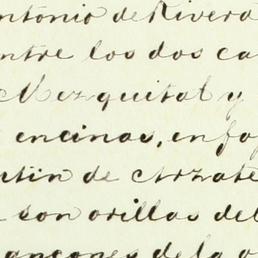 ntonio de Rivera
ntre los dos ca
Mezquital y
encinas, en fo
tin de Arzate
son orillas del
ancones de la